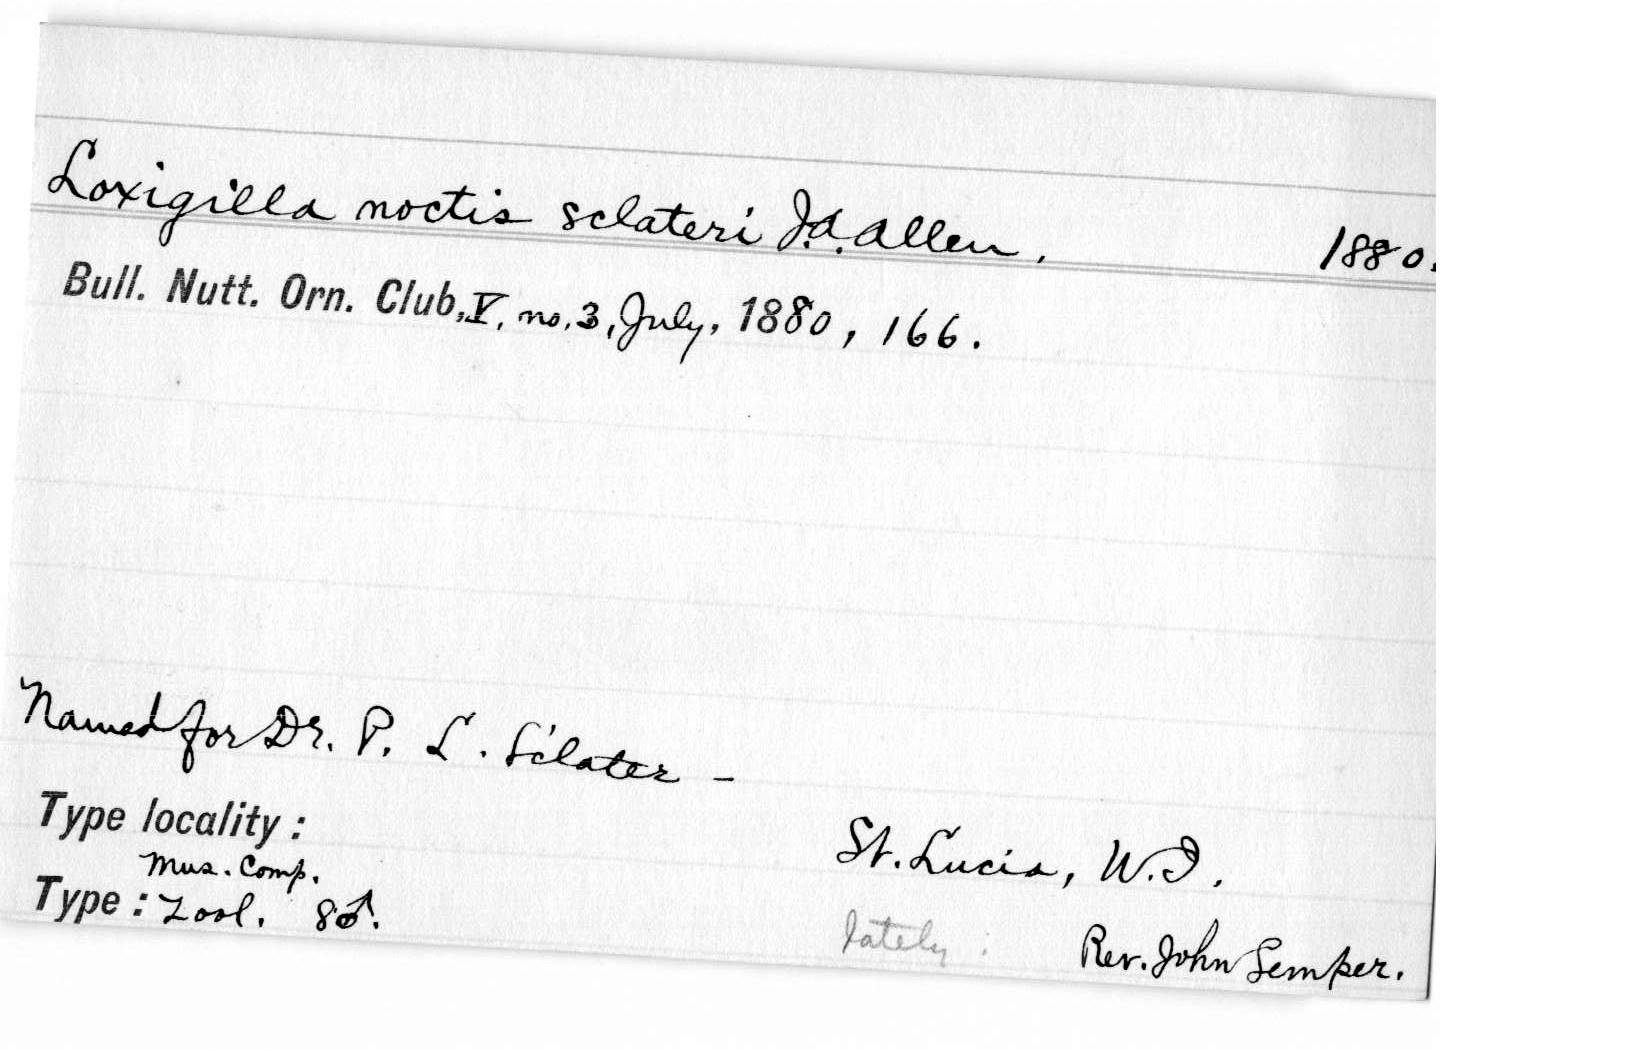 Loxigilla noctis sclateri J.A. Allen, 1880.
Bull. Nutt. Orn. Club, V, no. 3, July, 1880, 166.
Named for Dr. P. L. Sclater —
Type locality: St. Lucia, W.I.
Mus. Comp.
Type: Zool. 8♂.
lately: Rev. John Semper.